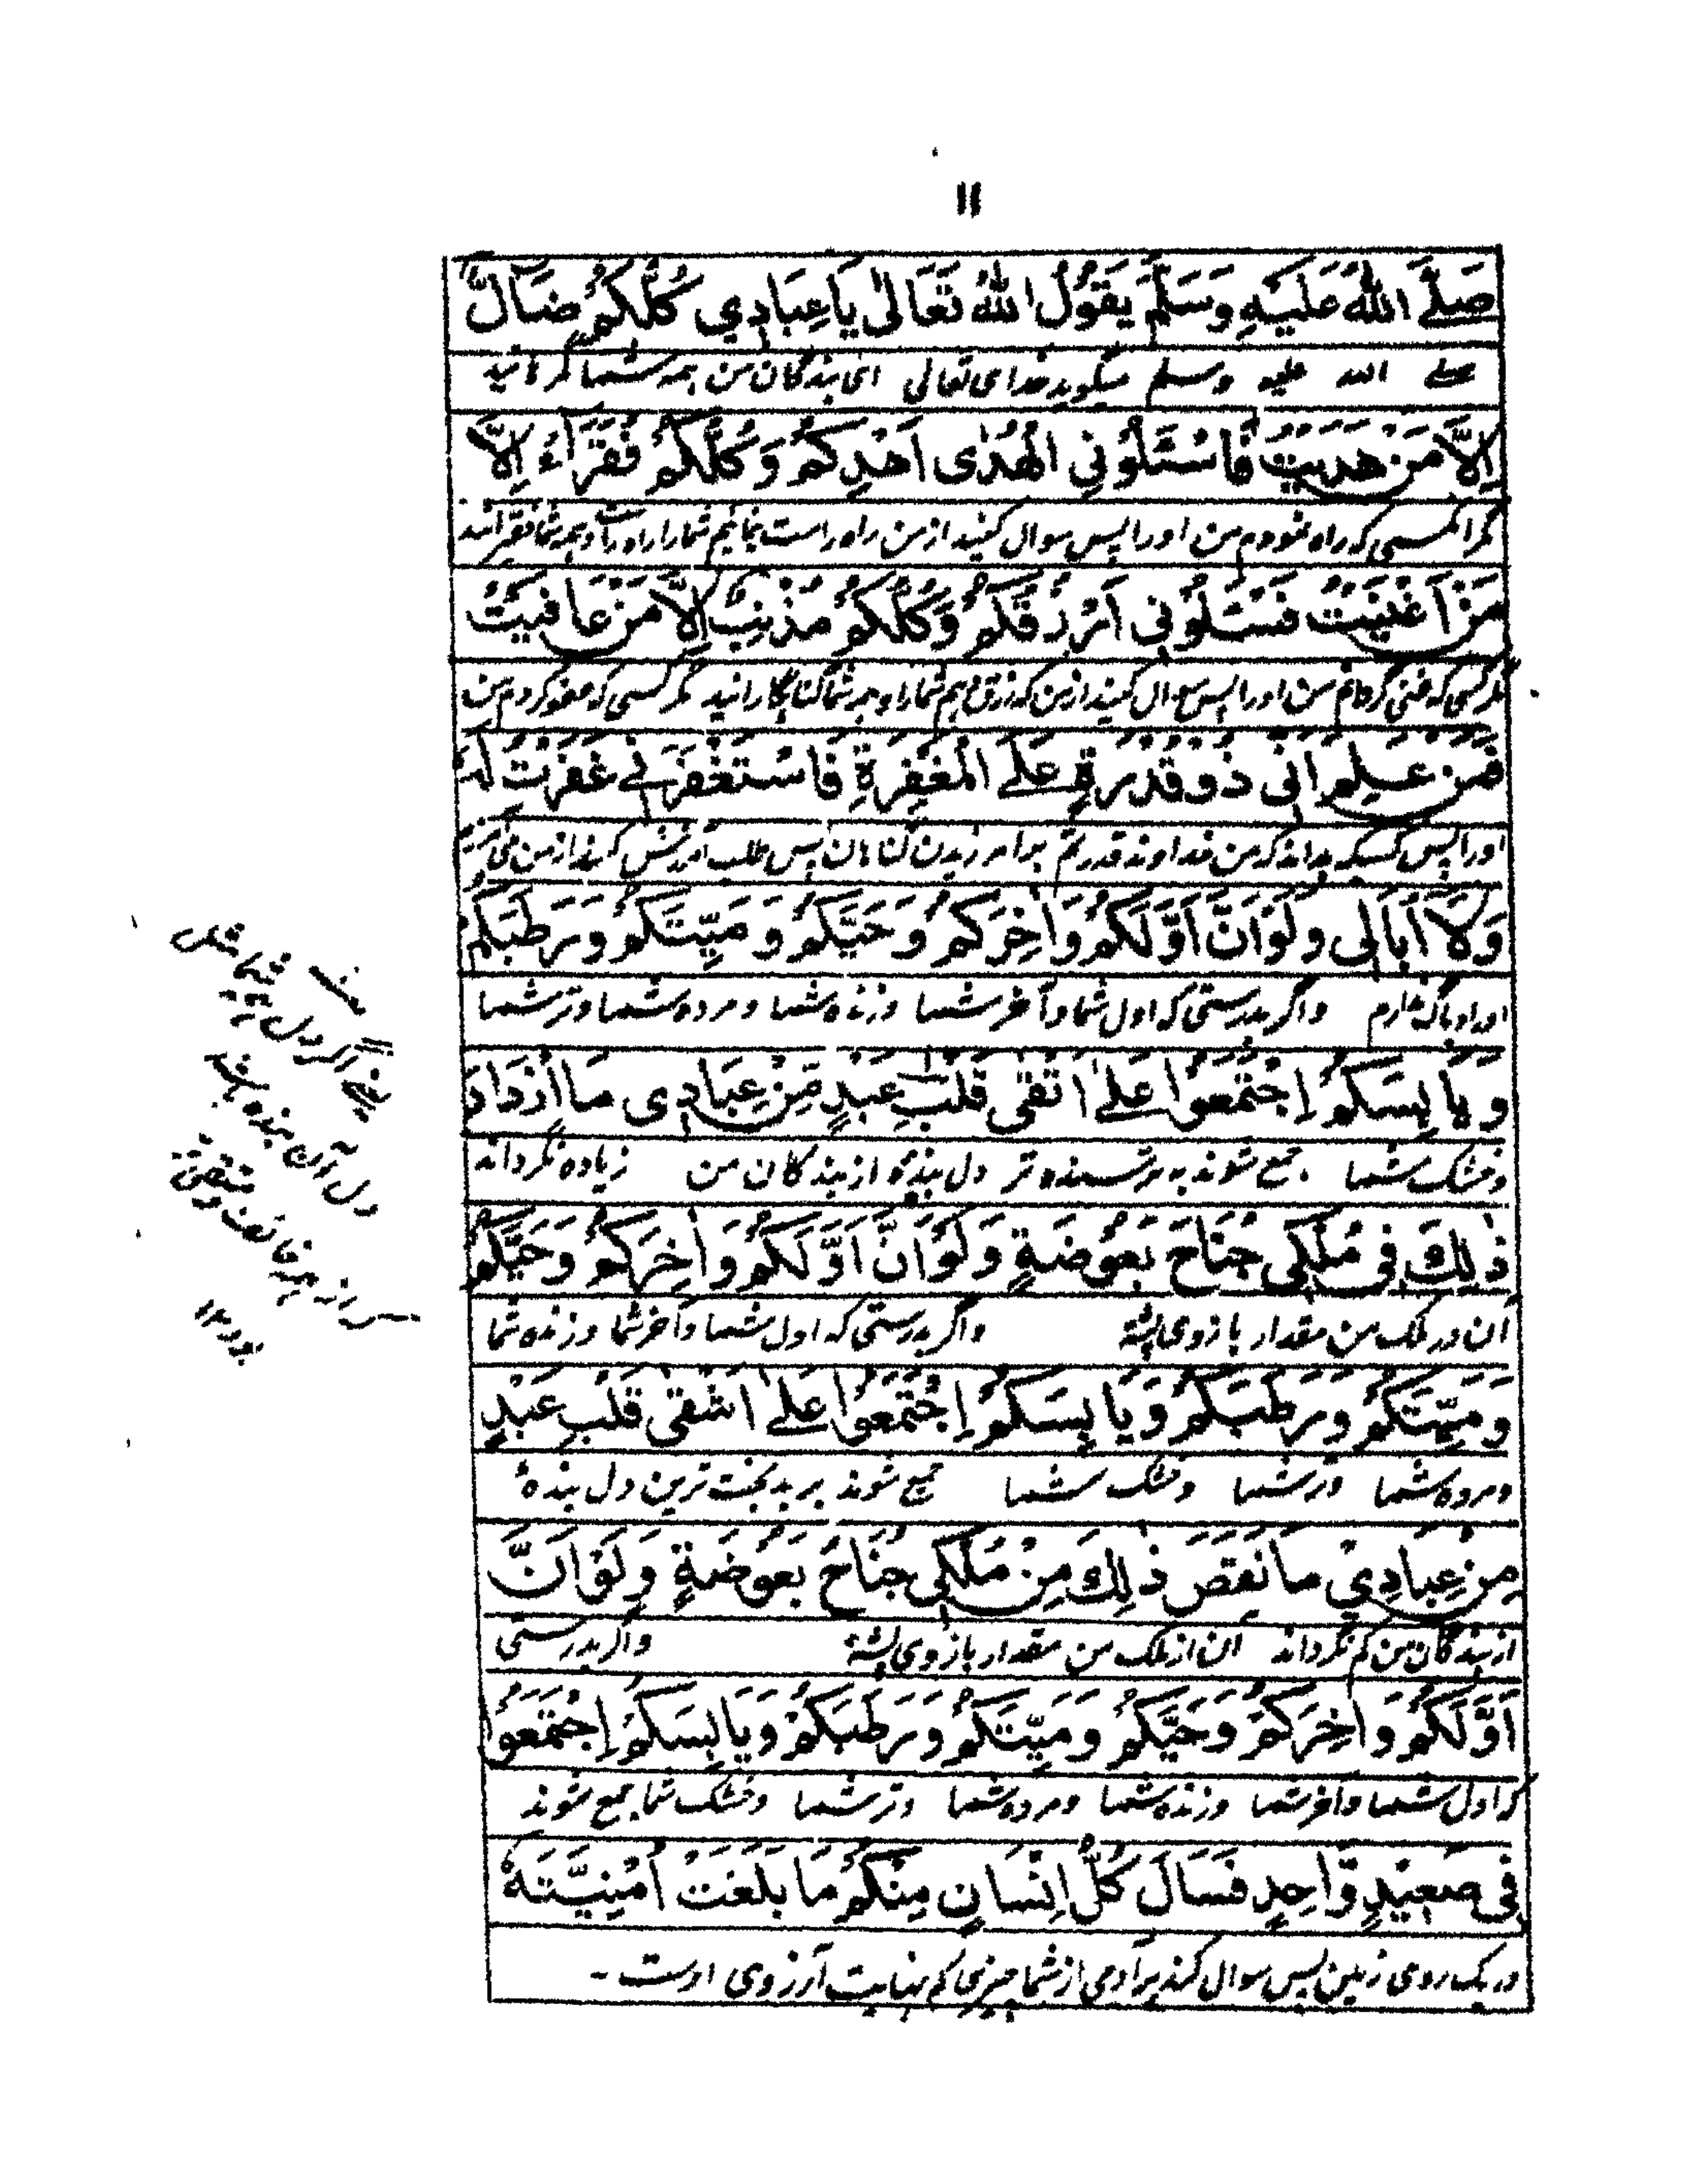 ۱۱
صَلَّى اللهُ عَلَيْهِ وَسَلَّمَ يَقُوْلُ اللهُ تَعَالٰى يَا عِبَادِي كُلُّكُمْ ضَالٌّ
صلے الله علیه وسلم میگوید خدای تعالی ای بندگان من همه شما گمراهانید
اِلَّا مَنْ هَدَيْتُ فَاسْئَلُوْنِي الْهُدٰى اَهْدِكُمْ وَكُلُّكُمْ فُقَرَآءُ اِلَّا
مگر آنکسی که راه نمودم من او را پس سوال کنید از من راه راست بنمایم شما را راه راست و همه شما فقیرانند
مَنْ اَغْنَيْتُ فَسْئَلُوْنِي اَرْزُقْكُمْ وَكُلُّكُمْ مُذْنِبٌ اِلَّا مَنْ عَافَيْتُ
مگر کسی که غنی گردانم من او را پس سوال کنید از من که رزق دهم شما را و همه شما گناهگارانید مگر کسی که عفو کردم من
فَمَنْ عَلِمَ اَنِّي ذُوْ قُدْرَةٍ عَلَى الْمَغْفِرَةِ فَاسْتَغْفَرَنِي غَفَرْتُ لَهُ
او را پس کسیکه بداند که من خداوند قدرتم بر آمرزیدن گناهان پس طلب آمرزش کند از من می آمرزم
وَلَا اُبَالِي وَلَوْ اَنَّ اَوَّلَكُمْ وَاٰخِرَكُمْ وَحَيَّكُمْ وَمَيِّتَكُمْ وَرَطْبَكُمْ
او را و باک ندارم واگر بدرستی که اول شما و آخر شما و زنده شما و مرده شما و تر شما
وَيَابِسَكُمْ اِجْتَمَعُوْا عَلٰى اَتْقٰى قَلْبِ عَبْدٍ مِّنْ عِبَادِى مَا ازْدَادَ
وخشک شما جمع شوند به ترسنده تر دل بندهٔ از بندگان من زیاده نگرداند
ذٰلِكَ فِى مُلْكِى جَنَاحَ بَعُوْضَةٍ وَلَوْ اَنَّ اَوَّلَكُمْ وَاٰخِرَكُمْ وَحَيَّكُمْ
آن در ملک من مقدار بازوی پشهٔ واگر بدرستی که اول شما و آخر شما و زنده شما
وَمَيِّتَكُمْ وَرَطْبَكُمْ وَيَابِسَكُمْ اِجْتَمَعُوْا عَلٰى اَشْقٰى قَلْبِ عَبْدٍ
ومرده شما وتر شما وخشک شما جمع شوند بر بدبخت ترین دل بندهٔ
مِنْ عِبَادِيْ مَا نَقَصَ ذٰلِكَ مِنْ مُلْكِى جَنَاحَ بَعُوْضَةٍ وَلَوْ اَنَّ
از بندگان من کم نگرداند آن از ملک من مقدار بازوی پشهٔ واگر بدرستی
اَوَّلَكُمْ وَاٰخِرَكُمْ وَحَيَّكُمْ وَمَيِّتَكُمْ وَرَطْبَكُمْ وَيَابِسَكُمْ اِجْتَمَعُوْا
که اول شما وآخر شما وزنده شما ومرده شما وتر شما وخشک شما جمع شوند
فِى صَعِيْدٍ وَّاحِدٍ فَسَاَلَ كُلُّ اِنْسَانٍ مِنْكُمْ مَا بَلَغَتْ اُمْنِيَّتَهُ
در یک روی زمین پس سوال کند هر آدمی از شما چیزی که نهایت آرزوی اوست -
یعنے اگر دل شما مثل
دل آن بنده باشد